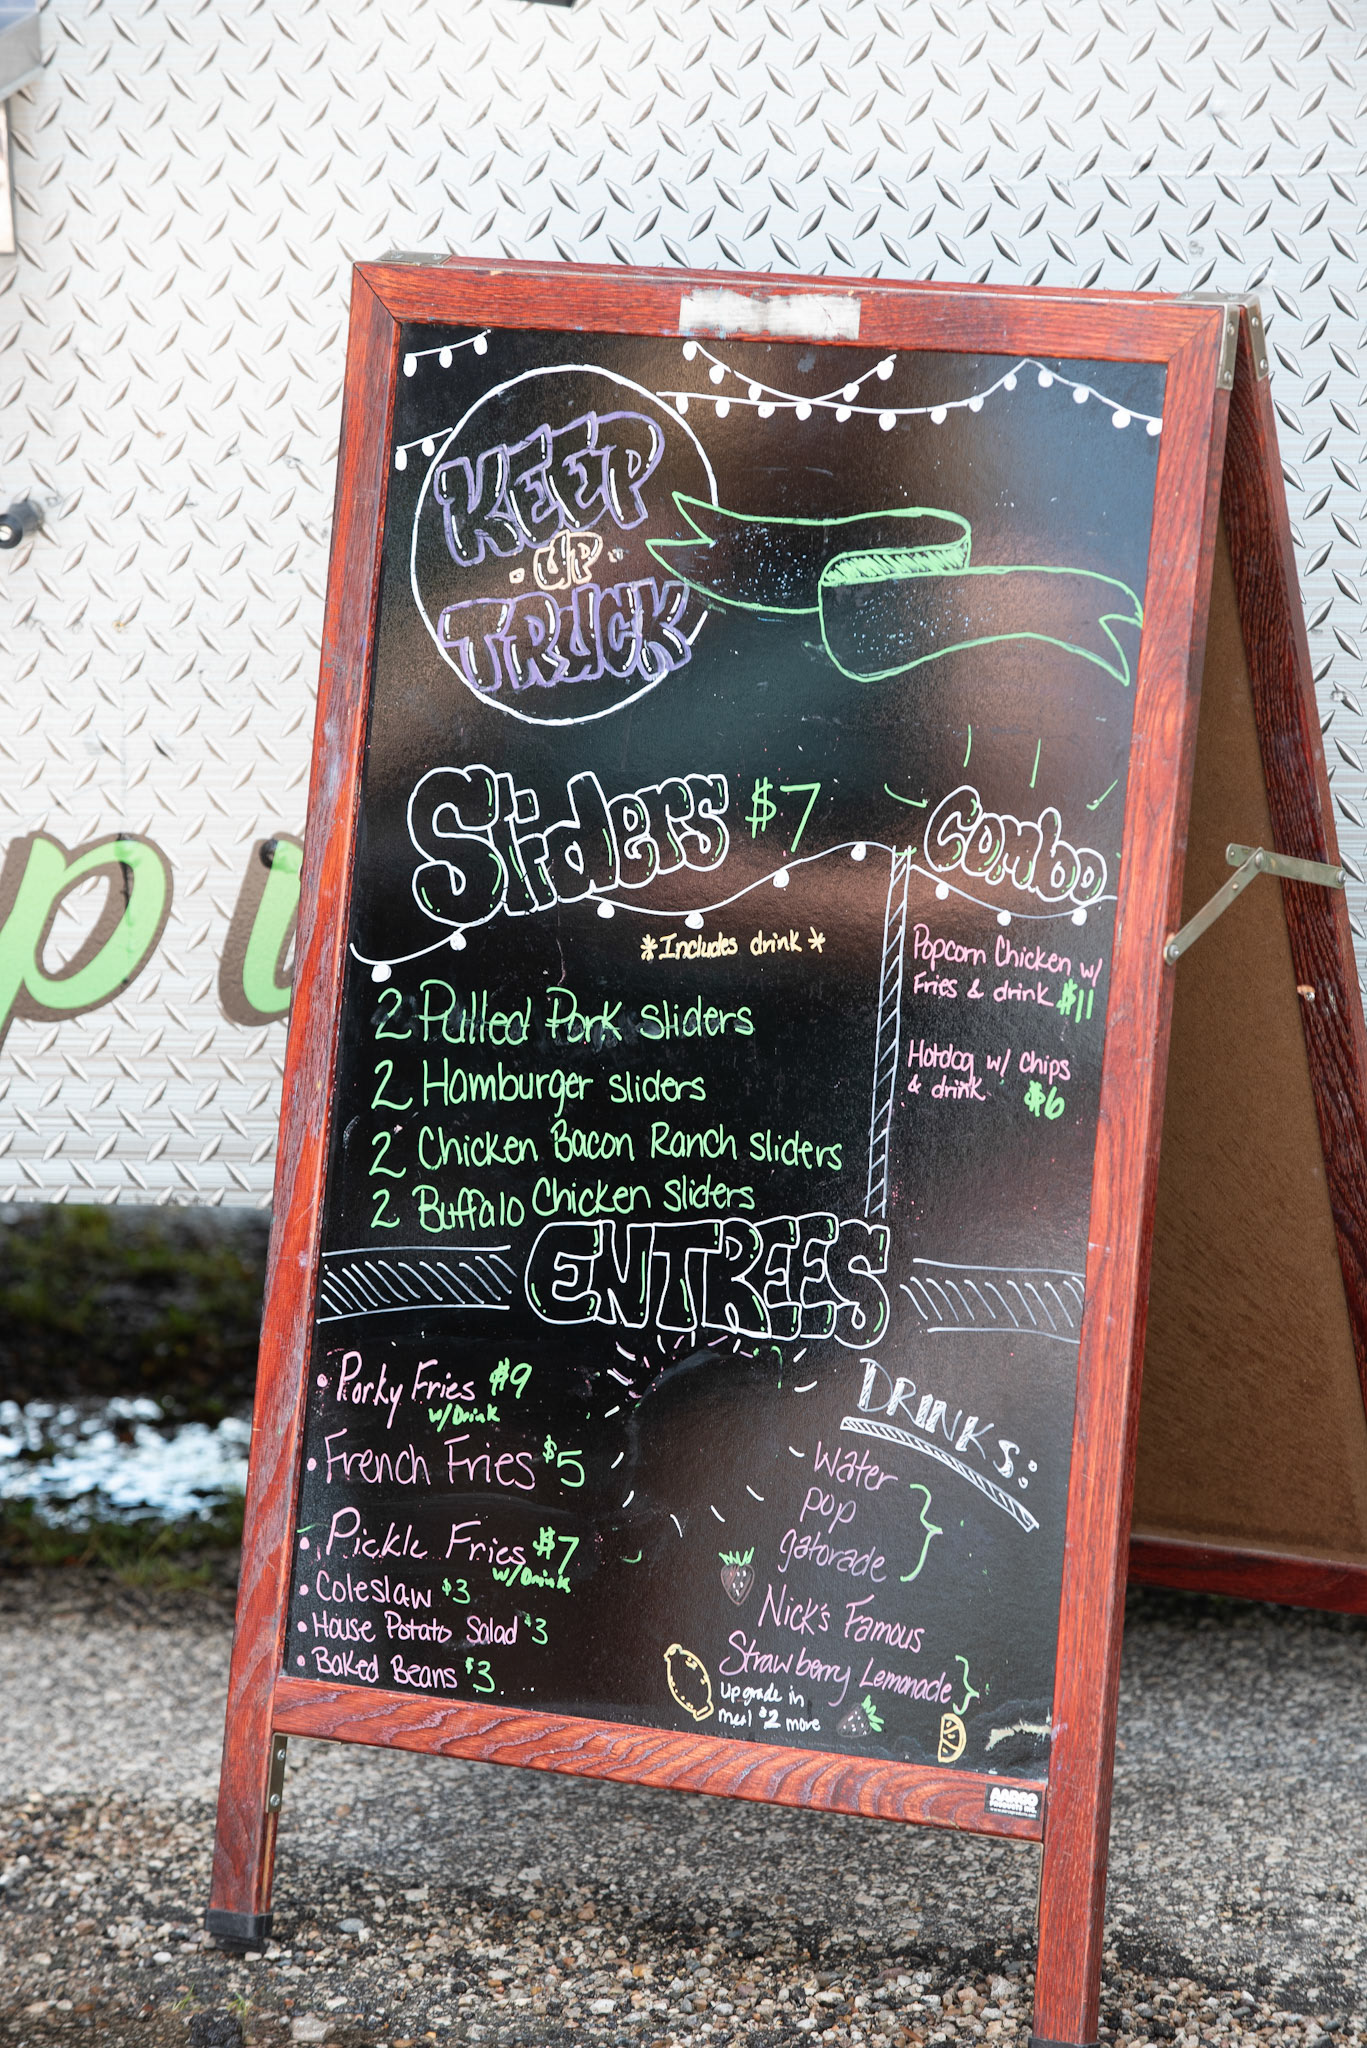 KEEP
UP
TRUCK
Sliders $7
*Includes drink*
2 Pulled Pork sliders
2 Hamburger sliders
2 Chicken Bacon Ranch sliders
2 Buffalo Chicken sliders
Combo
Popcorn Chicken w/
Fries & drink $11
Hotdog w/ chips
& drink $6
ENTREES
• Porky Fries $9
w/Drink
• French Fries $5
• Pickle Fries $7
w/Drink
• Coleslaw $3
• House Potato Salad $3
• Baked Beans $3
DRINKS:
Water
pop
gatorade
Nick's Famous
Strawberry Lemonade
upgrade in
meal $2 more
AARCO
PRODUCTS INC.
p